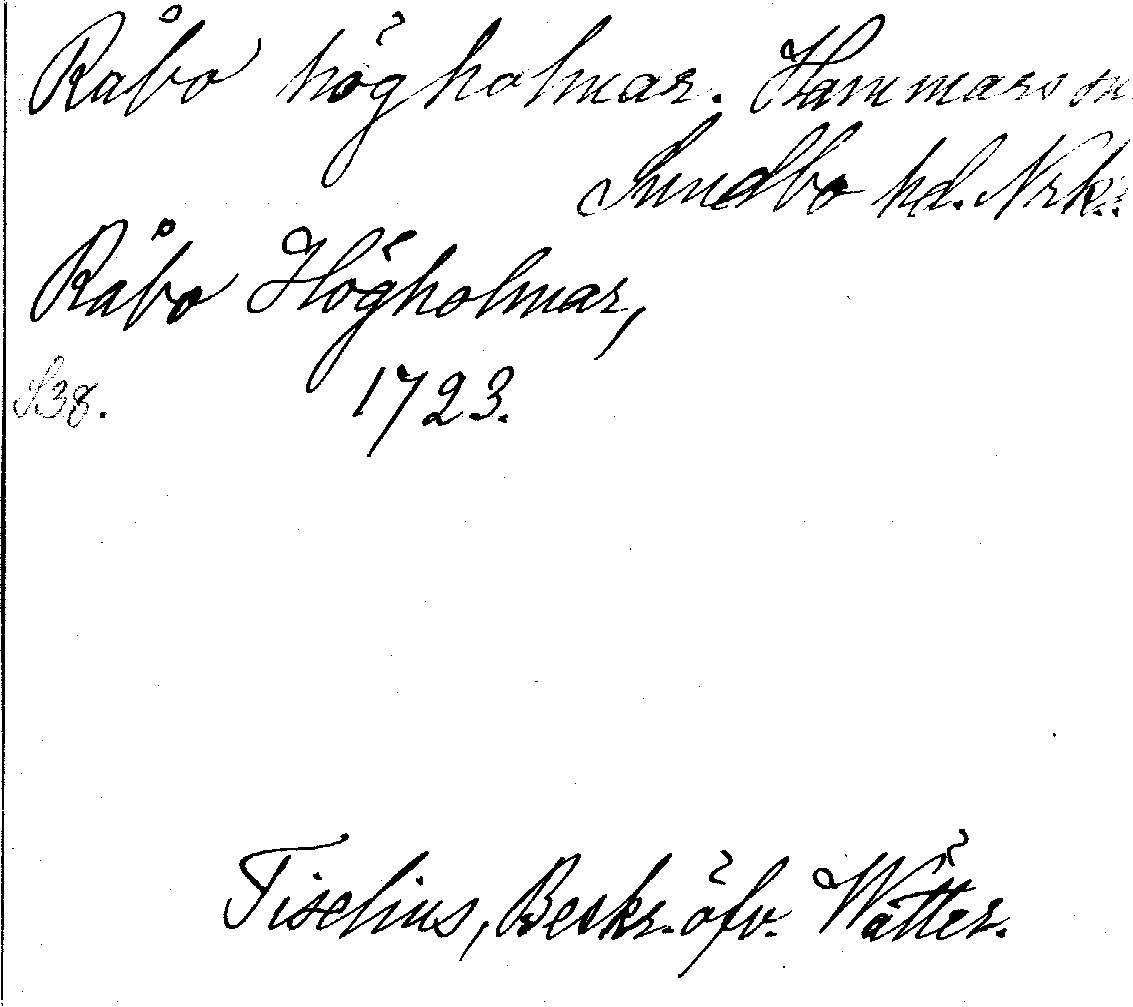 Råbo högholmar. Hammars sn
Sundbo hd. Nrk.
Råbo Högholmar,
S38. 1723.
Tiselius, Beskr. öfv. Wätter.